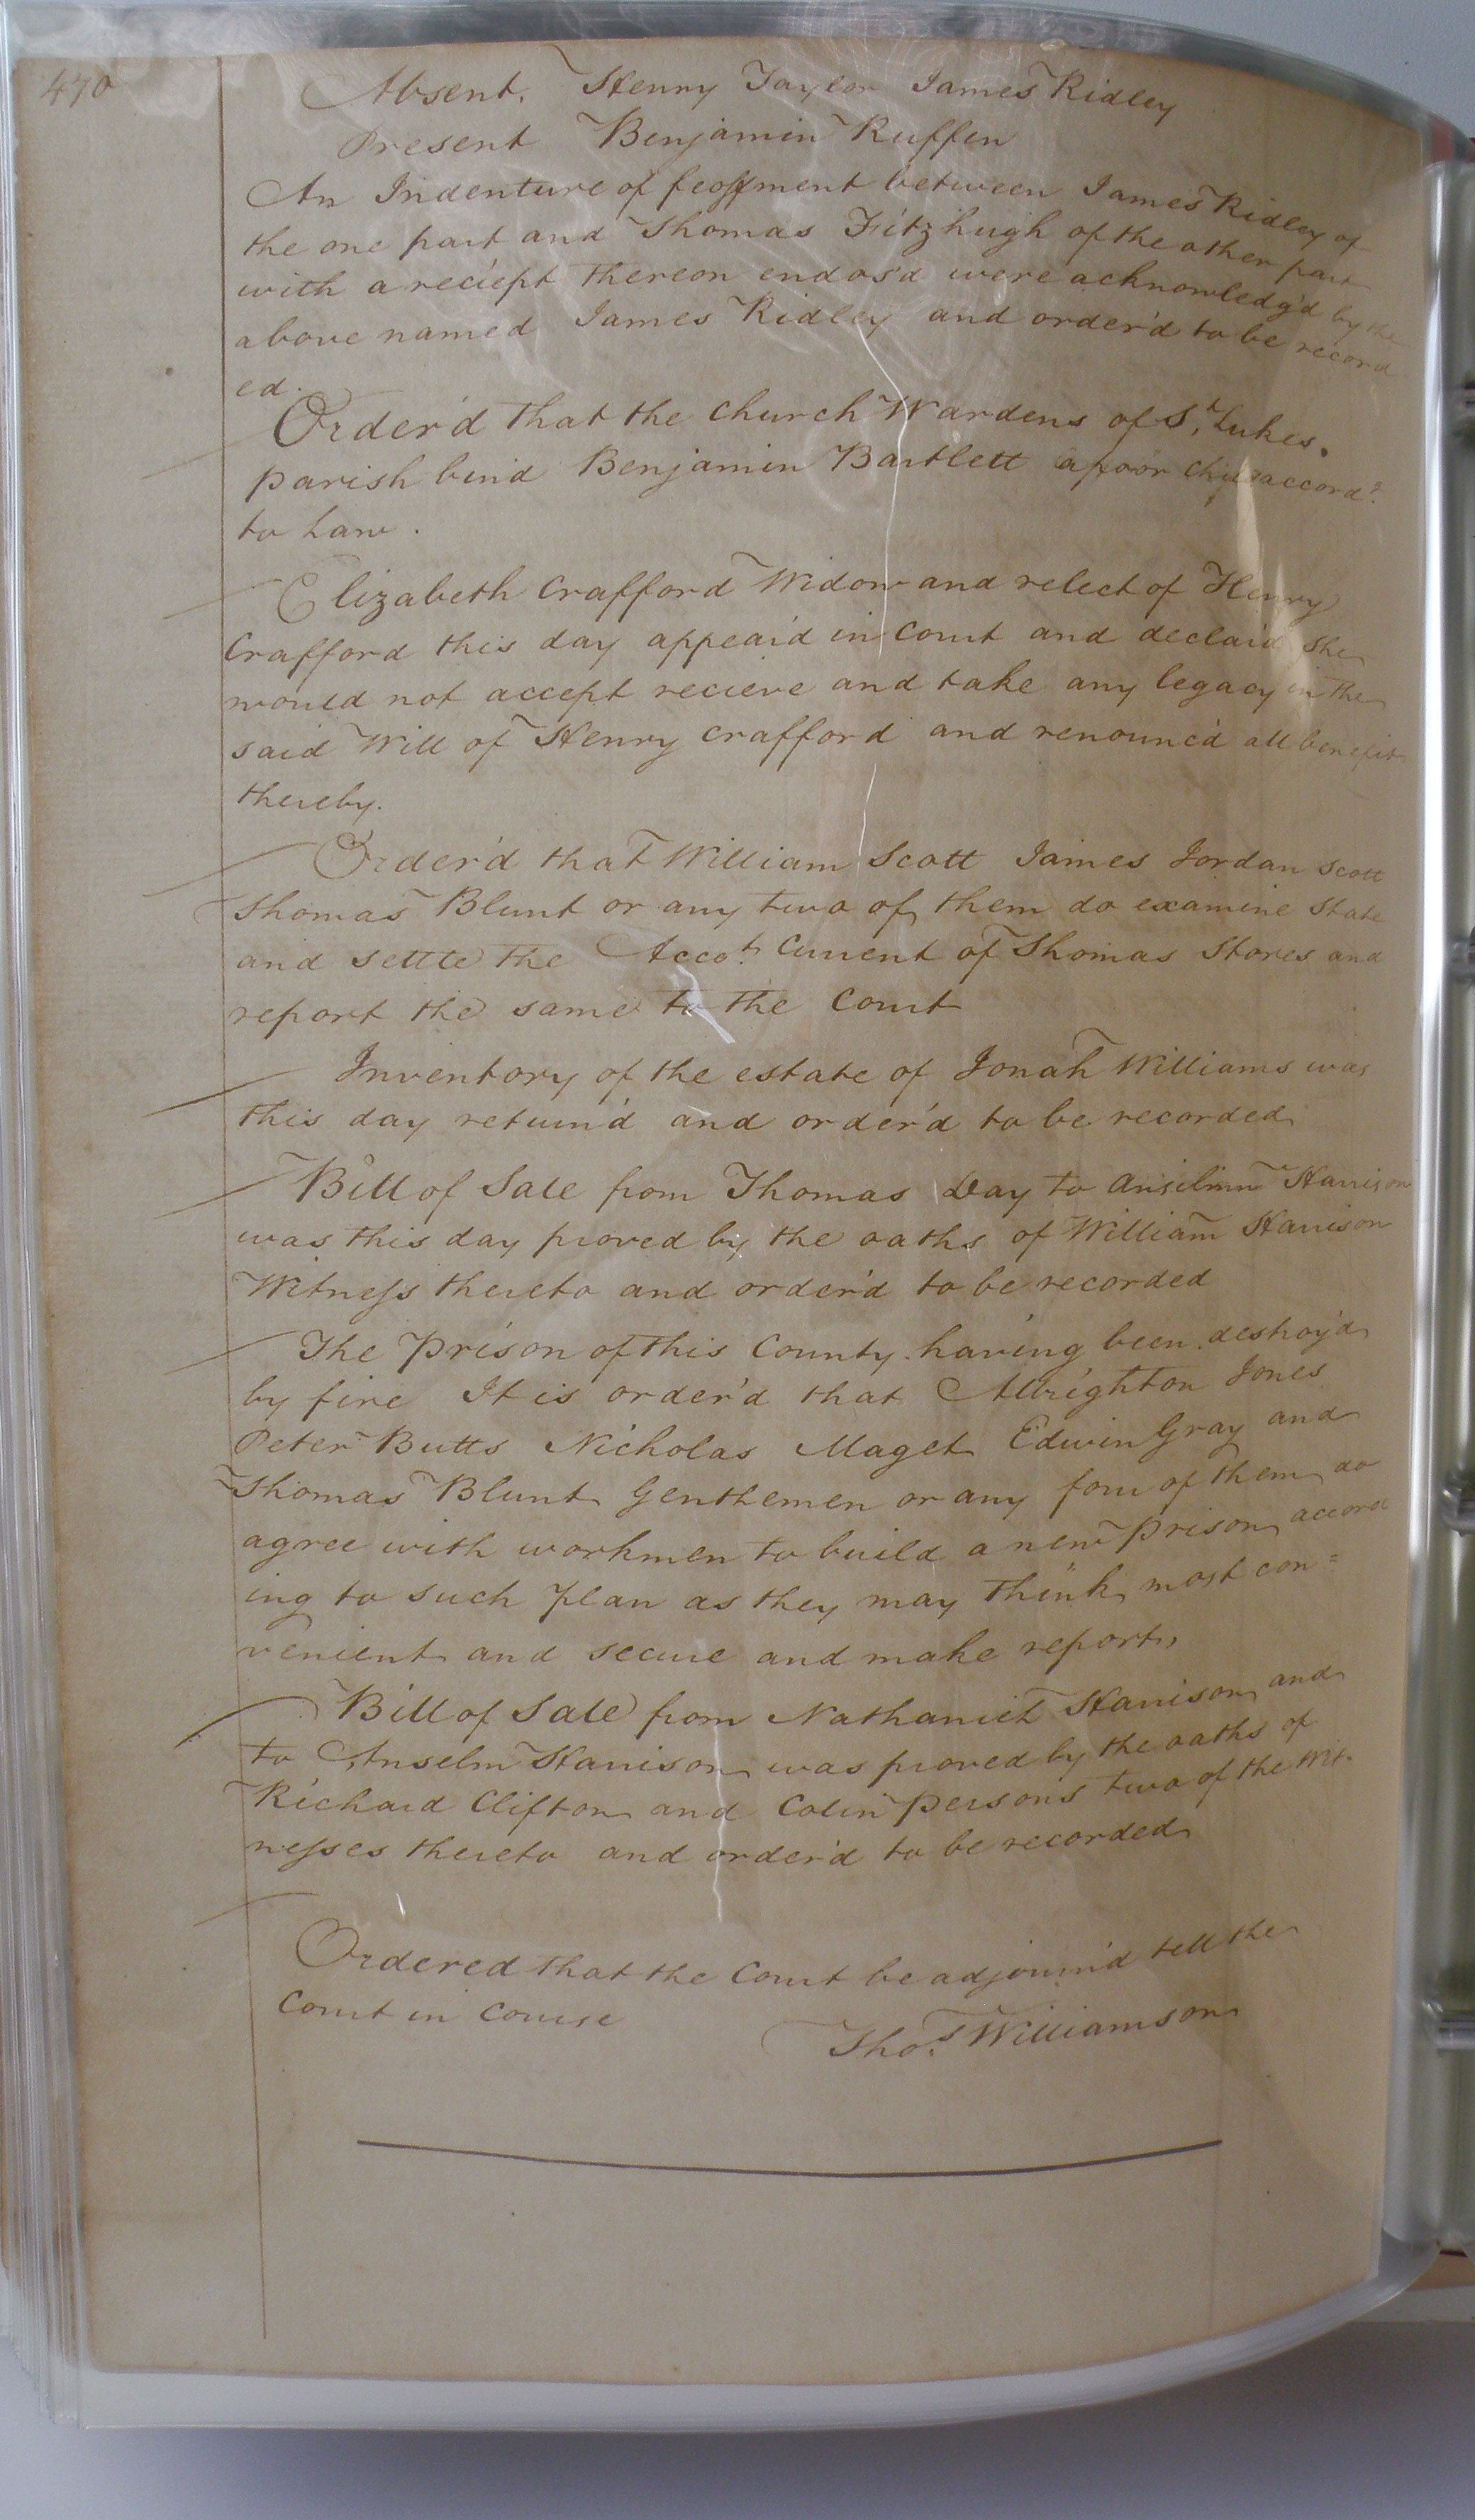 470
Absent. Henry Taylor James Ridley
Present Benjamin Ruffin
An Indenture of feoffment between James Ridley of
the one part and Thomas Fitzhugh of the other part
with a reciept thereon endos'd were acknowledg'd by the
above named James Ridley and order'd to be record
ed.
Order'd that the Church Wardens of St. Lukes
parish bind Benjamin Bartlett a poor child accordg.
to Law.
Elizabeth Crafford Widow and relect of Henry
Crafford this day appear'd in Court and declar'd she
would not accept recieve and take any legacy in the
said Will of Henry Crafford and renounc'd all benefit
thereby.
Order'd that William Scott James Jordan Scott
Thomas Blunt or any two of them do examine State
and settle the Accot. Current of Thomas Stores and
report the same to the Court
Inventory of the estate of Jonah Williams was
this day return'd and order'd to be recorded
Bill of Sale from Thomas Day to Anselmn Harrison
was this day proved by the oaths of William Harrison
Witness thereto and order'd to be recorded
The Prison of this County having been destroy'd
by fire It is order'd that Albrighton Jones
Peter Butts Nicholas Maget Edwin Gray and
Thomas Blunt Genthemen or any four of them do
agree with workmen to build a new prison accord
ing to such plan as they may think most con=
venient and secure and make report,
Bill of Sale from Nathaniel Harrison and
to Anselm Harrison was proved by the oaths of
Richard Clifton and Colin Persons two of the Wit-
nesses thereto and order'd to be recorded
Ordered that the Court be adjourn'd tell the
Court in Course
Thos. Williamson